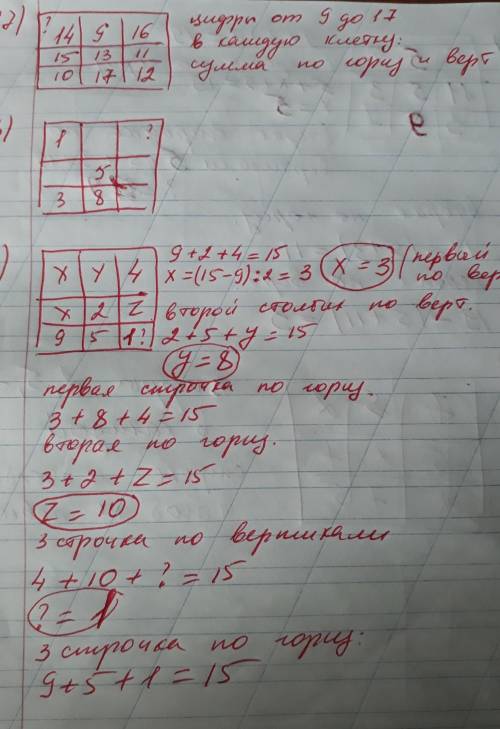 ?
14 9 16
15 13 11
10 17 12
цифры от 9 до 17
в каждую клетку:
сумма по гориз и верт
1 ?
5
3 8
е
X Y 4
X 2 Z
9 5 1?
9+2+4=15
x=(15-9):2=3 x=3 (первый
по вер
второй столбик по верт.
2+5+y=15
y=8
первая строчка по гориз.
3+8+4=15
вторая по гориз.
3+2+Z=15
Z=10
3 строчка по вертикали
4+10+?=15
?=1
3 строчка по гориз:
9+5+1=15